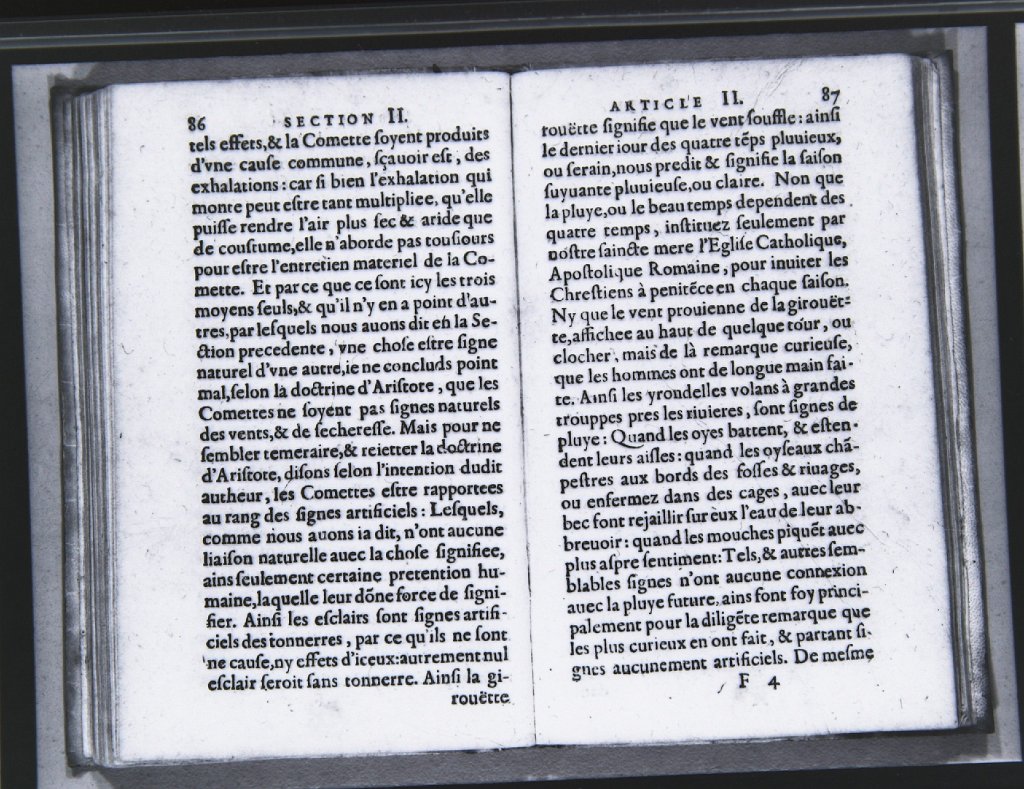 86 SECTION II.
tels effets,& la Comette soyent produits
d'vne cause commune, sçauoir est, des
exhalations: car si bien l'exhalation qui
monte peut estre tant multipliee, qu'elle
puisse rendre l'air plus sec & aride que
de coustume,elle n'aborde pas tousiours
pour estre l'entretien materiel de la Co-
mette. Et par ce que ce sont icy les trois
moyens seuls,& qu'il n'y en a point d'au-
tres,par lesquels nous auons dit en la Se-
ction precedente, vne chose estre signe
naturel d'vne autre,ie ne concluds point
mal,selon la doctrine d'Aristote, que les
Comettes ne soyent pas signes naturels
des vents,& de secheresse. Mais pour ne
sembler temeraire,& reietter la doctrine
d'Aristote, disons selon l'intention dudit
autheur, les Comettes estre rapportees
au rang des signes artificiels: Lesquels,
comme nous auons ia dit, n'ont aucune
liaison naturelle auec la chose signifiee,
ains seulement certaine pretention hu-
maine,laquelle leur dõne force de signi-
fier. Ainsi les esclairs sont signes artifi-
ciels des tonnerres, par ce qu'ils ne sont
ne cause,ny effets d'iceux:autrement nul
esclair seroit sans tonnerre. Ainsi la gi-
rouëtte
ARTICLE II. 87
rouëtte signifie que le vent souffle: ainsi
le dernier iour des quatre tẽps pluuieux,
ou serain,nous predit & signifie la saison
suyuante pluuieuse,ou claire. Non que
la pluye,ou le beau temps dependent des
quatre temps, instituez seulement par
nostre saincte mere l'Eglise Catholique,
Apostolique Romaine, pour inuiter les
Chrestiens à penitẽce en chaque saison.
Ny que le vent prouienne de la girouët-
te,affichee au haut de quelque tour, ou
clocher, mais de là remarque curieuse,
que les hommes ont de longue main fai-
te. Ainsi les yrondelles volans à grandes
trouppes pres les riuieres, sont signes de
pluye: Quand les oyes battent, & esten-
dent leurs aisles: quand les oyseaux chã-
pestres aux bords des fosses & riuages,
ou enfermez dans des cages, auec leur
bec font rejaillir sur eux l'eau de leur ab-
breuoir: quand les mouches piquẽt auec
plus aspre sentiment: Tels,& autres sem-
blables signes n'ont aucune connexion
auec la pluye future, ains font foy princi-
palement pour la diligẽte remarque que
les plus curieux en ont fait, & partant si-
gnes aucunement artificiels. De mesme
F 4